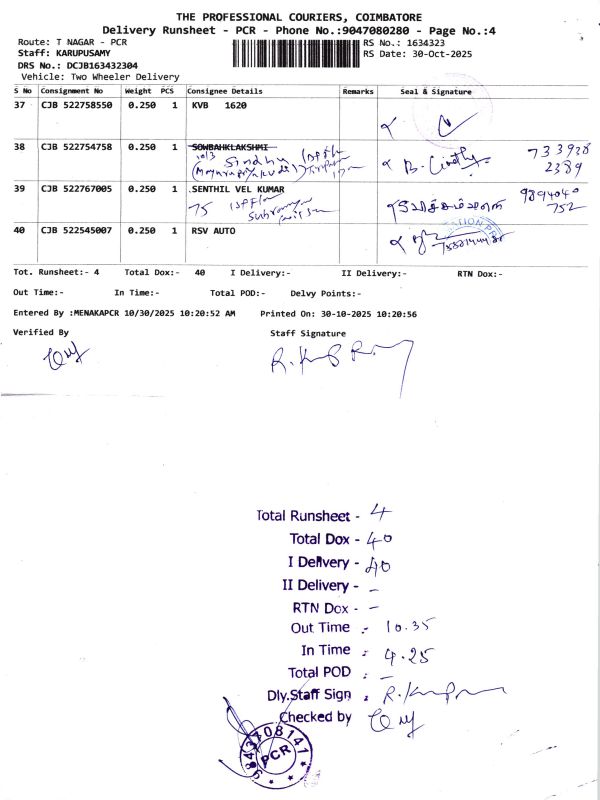 THE PROFESSIONAL COURIERS, COIMBATORE
Delivery Runsheet - PCR - Phone No.:9047080280 - Page No.:4
Route: T NAGAR - PCR
RS No.: 1634323
Staff: KARUPUSAMY
RS Date: 30-Oct-2025
DRS No.: DCJB163432304
Vehicle: Two Wheeler Delivery
S No Consignment No Weight PCS Consignee Details Remarks Seal & Signature
37 CJB 522758550 0.250 1 KVB 1620
38 CJB 522754758 0.250 1 SOWBAHKLAKSHMI
Sindhu
733938
2389
39 CJB 522767005 0.250 1 .SENTHIL VEL KUMAR
75
9894040
752
40 CJB 522545007 0.250 1 RSV AUTO
Tot. Runsheet:- 4 Total Dox:- 40 I Delivery:- II Delivery:- RTN Dox:-
Out Time:- In Time:- Total POD:- Delvy Points:-
Entered By :MENAKAPCR 10/30/2025 10:20:52 AM Printed On: 30-10-2025 10:20:56
Verified By Staff Signature
Total Runsheet - 4
Total Dox - 40
I Delivery - 40
II Delivery - -
RTN Dox - -
Out Time :- 10.35
In Time : 4.25
Total POD : -
Dly.Staff Sign :
Checked by
9843708141
PCR